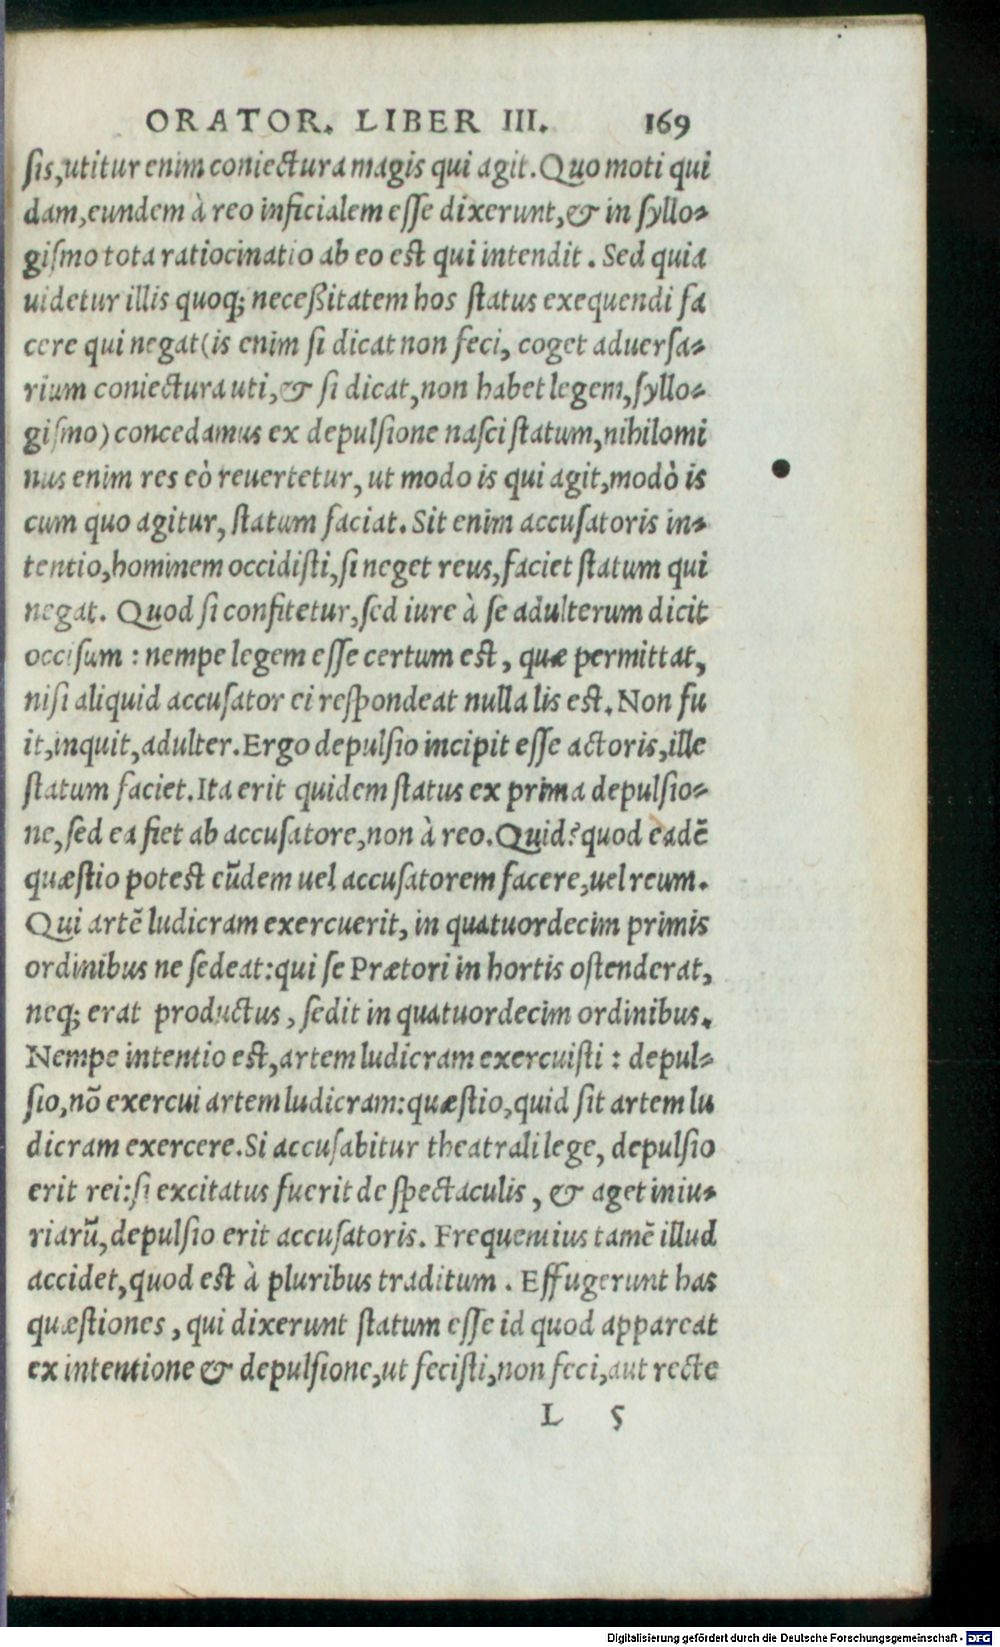 ORATOR. LIBER III. 169
sis,utitur enim coniectura magis qui agit. Quo moti qui
dam,eundem à reo inficialem esse dixerunt,& in syllo-
gismo tota ratiocinatio ab eo est qui intendit. Sed quia
uidetur illis quoq; neceßitatem hos status exequendi fa
cere qui negat(is enim si dicat non feci, coget aduersa-
rium coniectura uti,& si dicat,non habet legem,syllo-
gismo) concedamus ex depulsione nasci statum,nihilomi
nus enim res eò reuertetur, ut modo is qui agit,modò is
cum quo agitur, statum faciat. Sit enim accusatoris in-
tentio,hominem occidisti,si neget reus,faciet statum qui
negat. Quod si confitetur,sed iure à se adulterum dicit
occisum : nempe legem esse certum est, quæ permittat,
nisi aliquid accusator ei respondeat nulla lis est. Non fu
it,inquit,adulter. Ergo depulsio incipit esse actoris,ille
statum faciet. Ita erit quidem status ex prima depulsio-
ne,sed ea fiet ab accusatore,non à reo. Quid? quod eadē
quæstio potest eūdem uel accusatorem facere,uel reum.
Qui artē ludicram exercuerit, in quatuordecim primis
ordinibus ne sedeat:qui se Prætori in hortis ostenderat,
neq; erat productus, sedit in quatuordecim ordinibus.
Nempe intentio est,artem ludicram exercuisti : depul-
sio,nõ exercui artem ludicram:quæstio,quid sit artem lu
dicram exercere. Si accusabitur theatrali lege, depulsio
erit rei:si excitatus fuerit de spectaculis, & aget iniu-
riarū,depulsio erit accusatoris. Frequentius tamē illud
accidet,quod est à pluribus traditum. Effugerunt has
quæstiones, qui dixerunt statum esse id quod appareat
ex intentione & depulsione,ut fecisti,non feci,aut recte
L 5
Digitalisierung gefördert durch die Deutsche Forschungsgemeinschaft - DFG